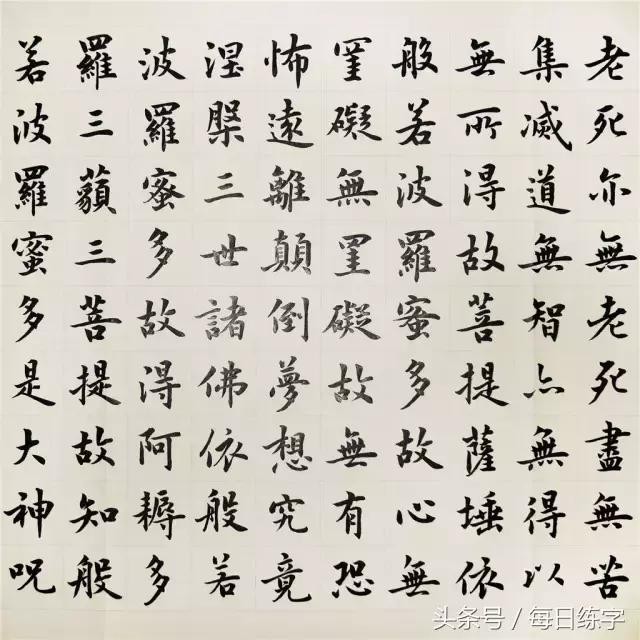 老死亦無老死盡無苦
集滅道無智亦無得以
無所得故菩提薩埵依
般若波羅蜜多故心無
罣礙無罣礙故無有恐
怖遠離顛倒夢想究竟
涅槃三世諸佛依般若
波羅蜜多故得阿耨多
羅三藐三菩提故知般
若波羅蜜多是大神呪
头条号 / 每日练字